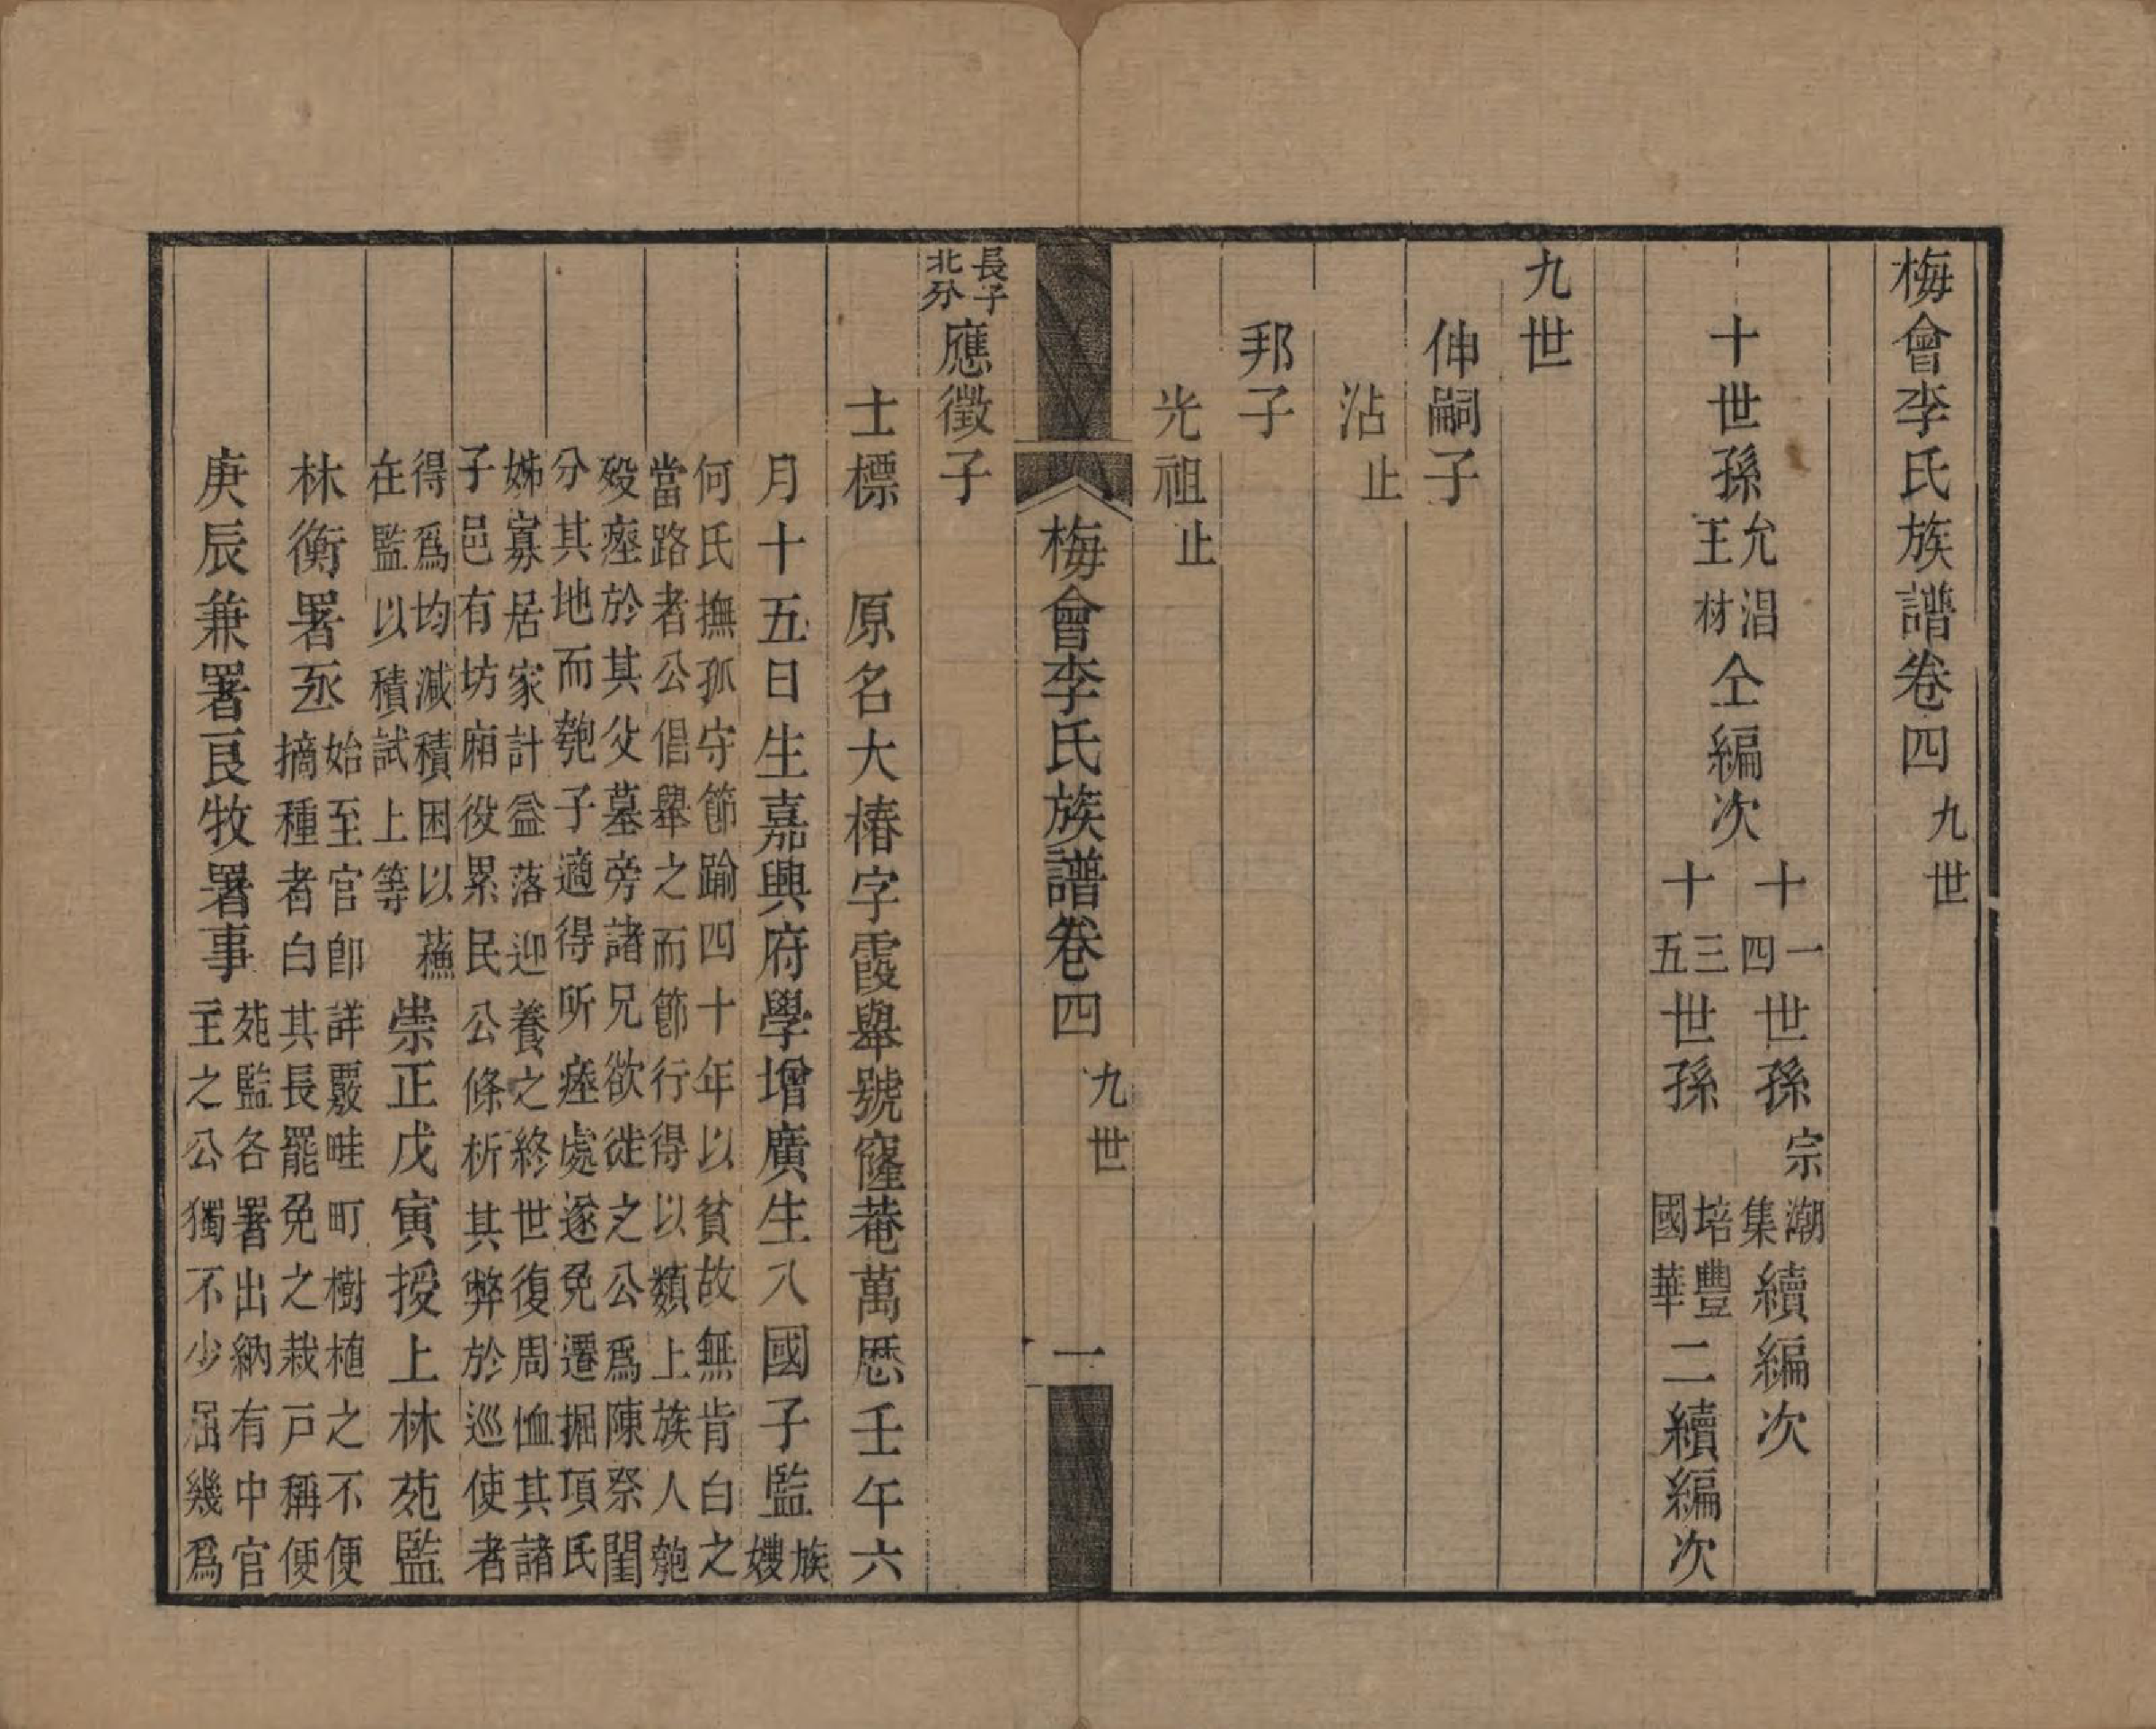 梅會李氏族譜卷四 九世
十世孫 允淐 王材 仝編次 十一世孫宗潮 十四世孫集 續編次 十三世孫培豐 十五世孫國華 二續編次
九世
伸嗣子
沾 止
邦子
光祖 止
梅會李氏族譜卷四 九世 一
長子北分 應徵子
士標 原名大椿字霞舉號窿菴萬歷壬午六
月十五日生嘉興府學增廣生入國子監 族嫂
何氏撫孤守節踰四十年以貧故無肯白之
當路者公倡舉之而節行得以類上族人匏
歿瘞於其父墓旁諸兄欲徙之公爲陳祭閨
分其地而匏子適得所瘞處遂免遷掘項氏
姊寡居家計益落迎養之終世復周恤其諸
子邑有坊廂役累民公條析其弊於巡使者
得爲均減積困以蘓
在監以積試上等
崇正戊寅授上林苑監
林衡署丞 始至官卽詳覈畦町樹植之不便
摘種者白其長罷免之栽戸稱便
庚辰兼署良牧署事 苑監各署出納有中官
主之公獨不少屈幾爲